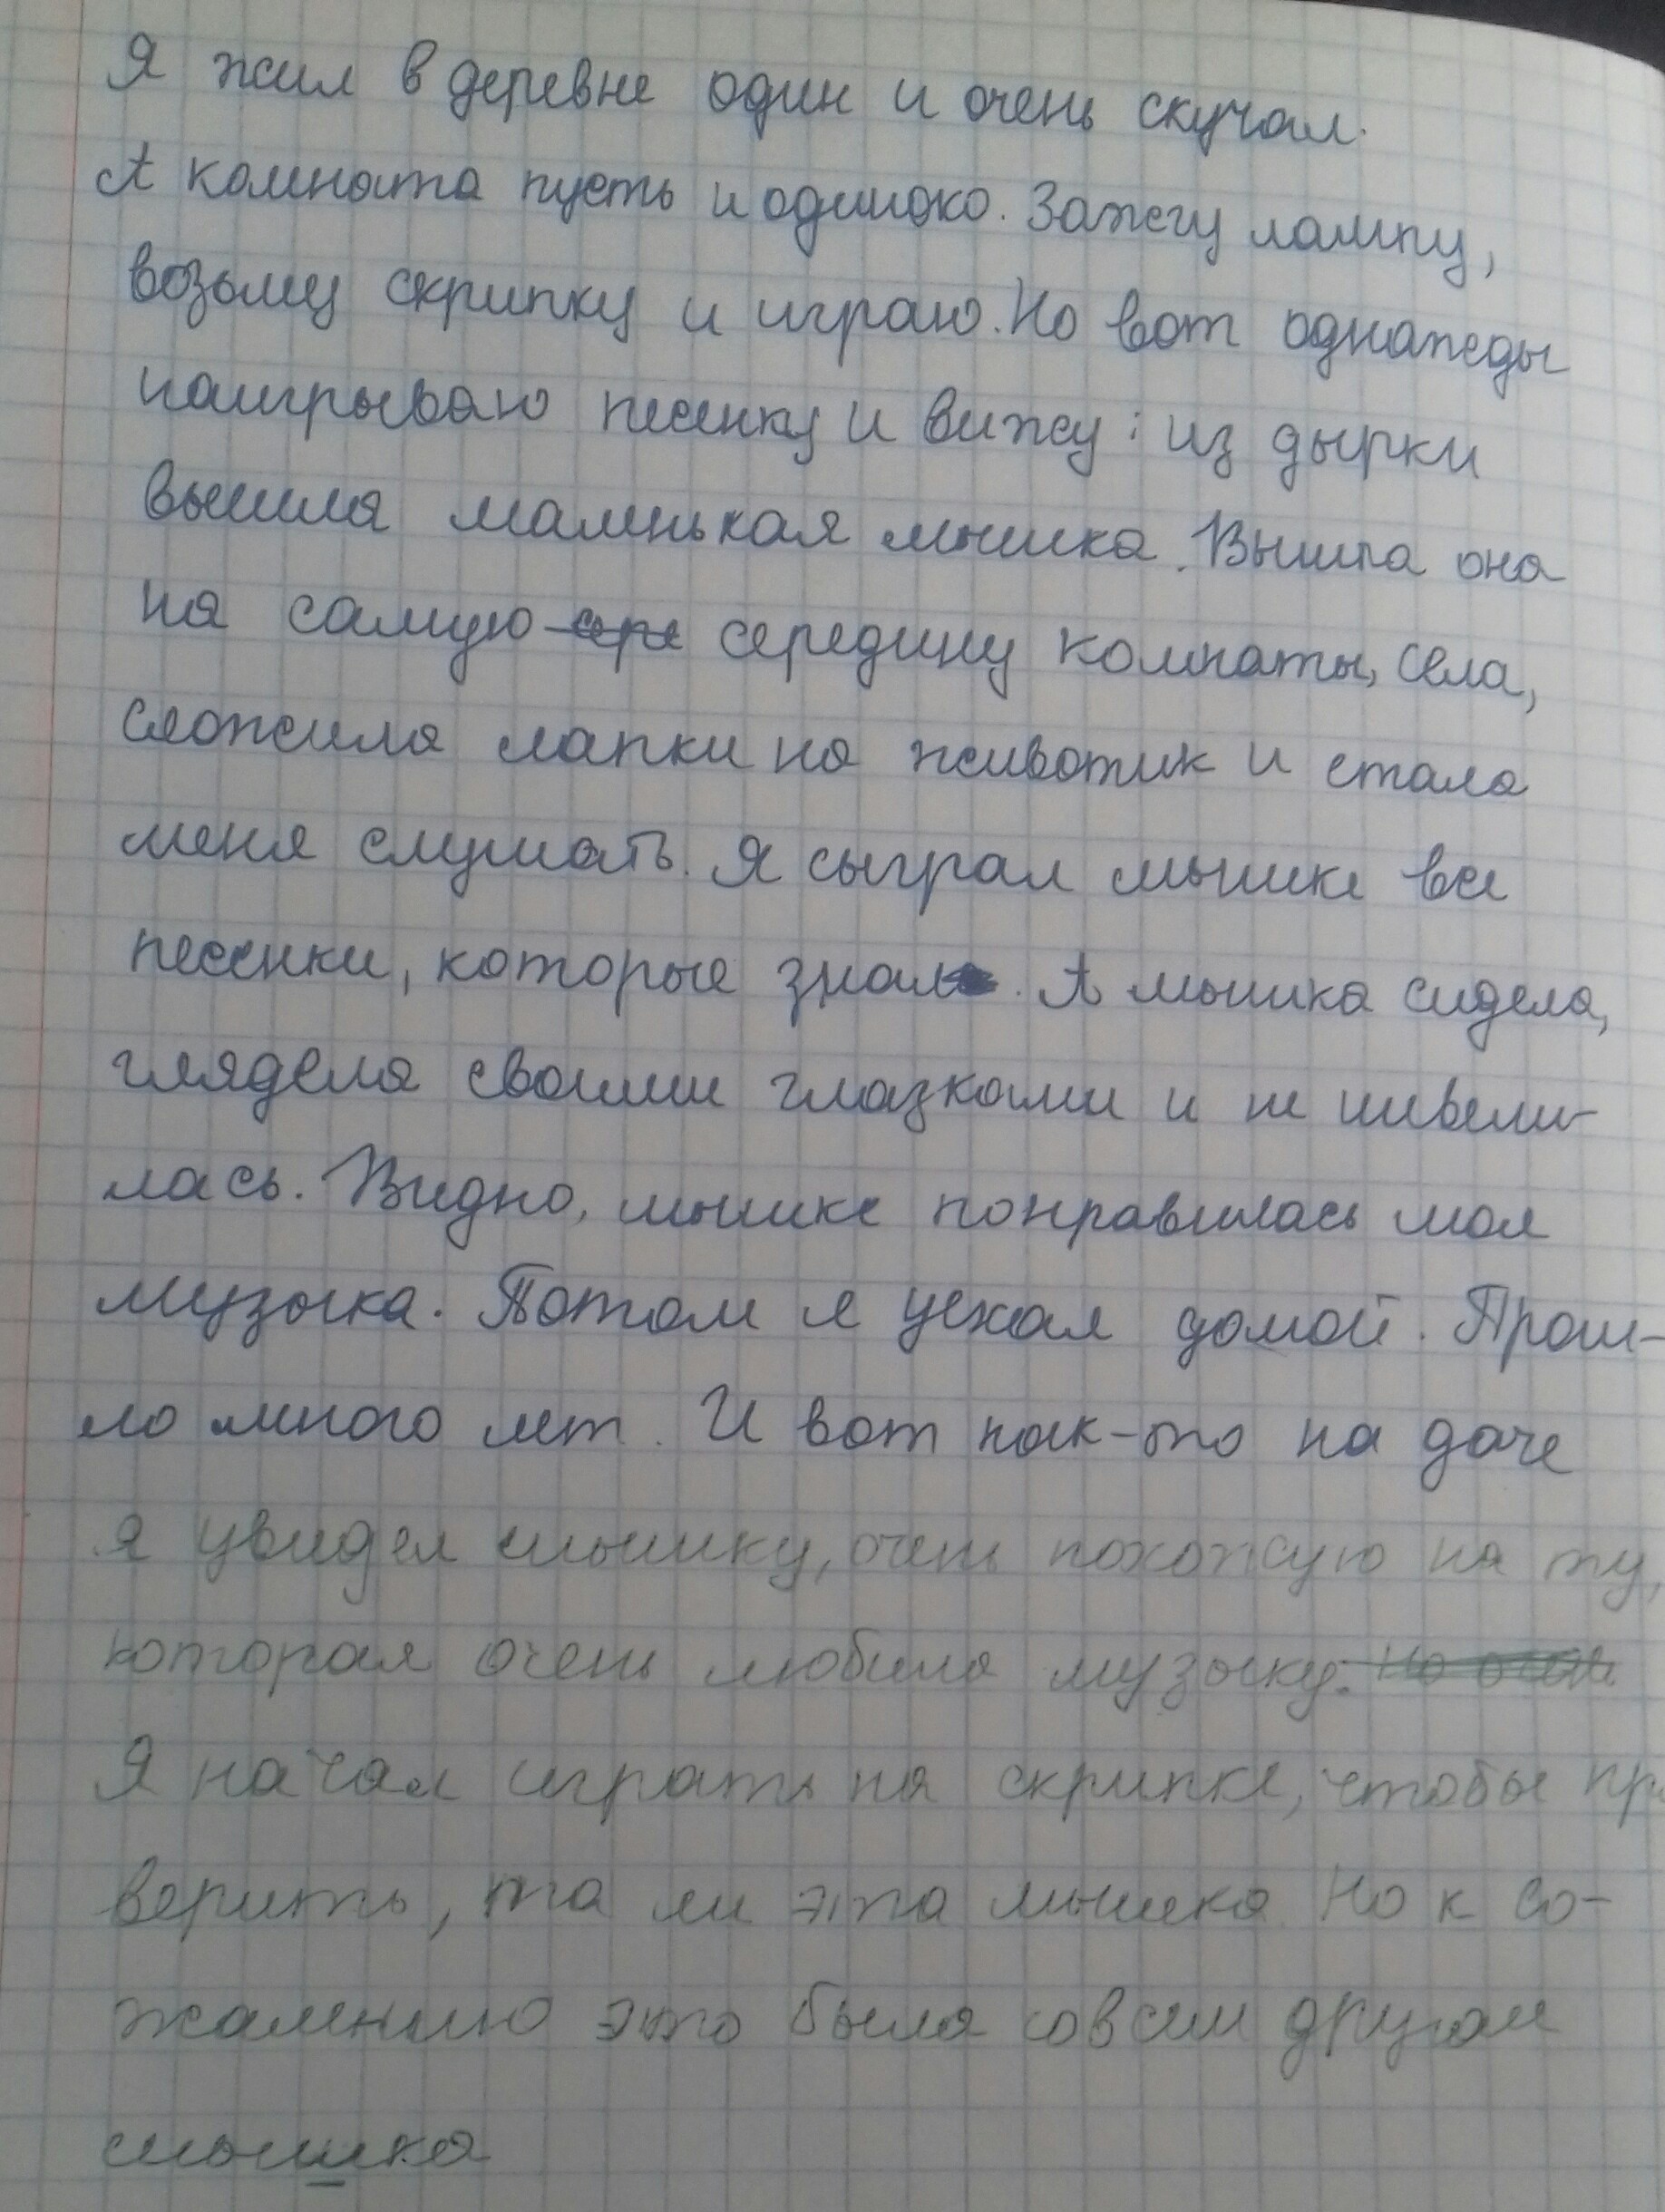 Я жил в деревне один и очень скучал.
А комната пусть и одиноко. Зажгу лампу,
возьму скрипку и играю. Но вот однажды
наигрываю песенку и вижу: из дырки
вышла маленькая мышка. Вышла она
на самую сере середину комнаты, села,
сложила лапки на животик и стала
меня слушать. Я сыграл мышке все
песенки, которые знал. А мышка сидела,
глядела своими глазками и не шевели-
лась. Видно, мышке понравилась моя
музыка. Потом я уехал домой. Прош-
ло много лет. И вот как-то на даче
я увидел мышку, очень похожую на ту,
которая очень любила музыку.
Я начал играть на скрипке, чтобы про
верить, та ли эта мышка. Но к со-
жалению это была совсем другая
мышка